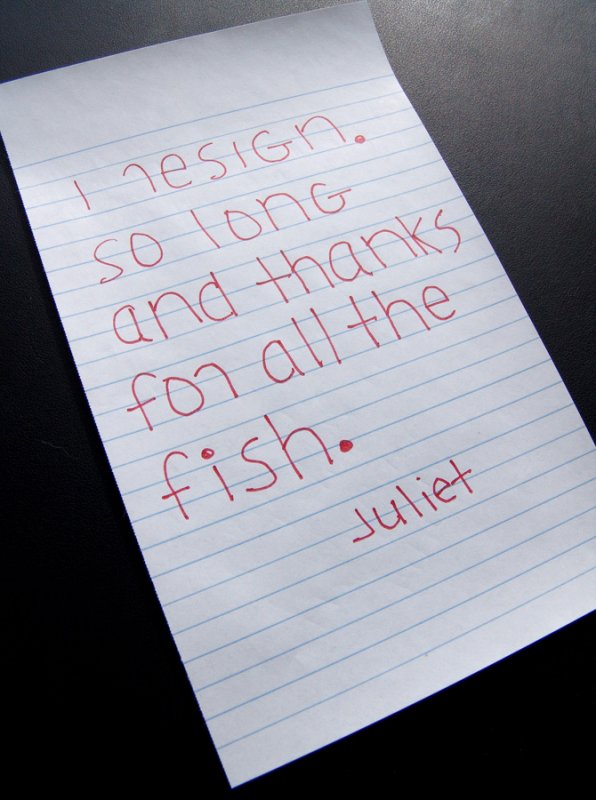 I resign.
so long
and thanks
for all the
fish.
Juliet